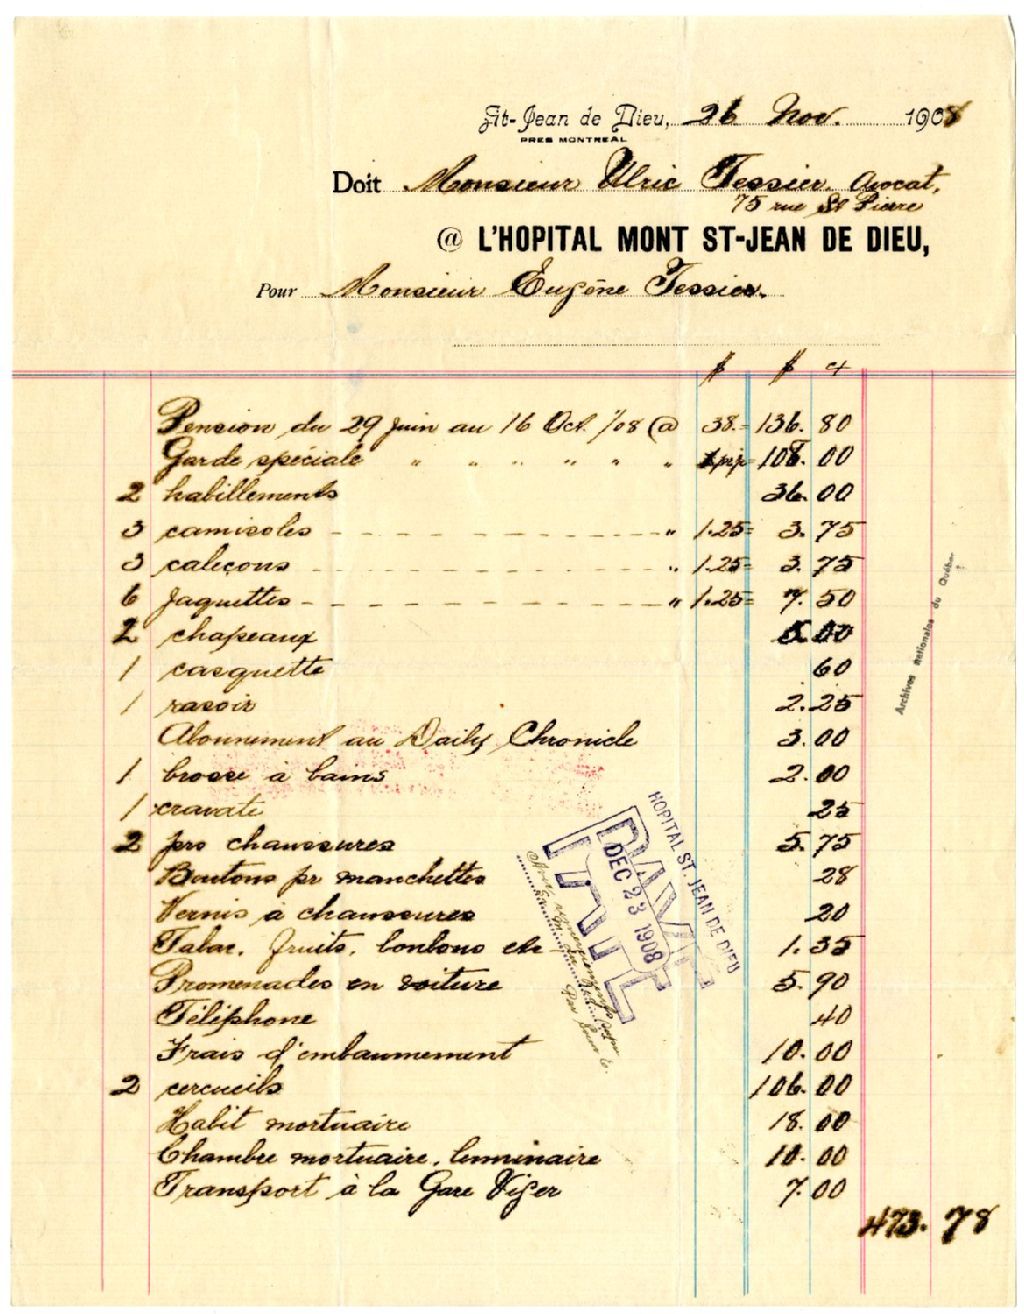 St-Jean de Dieu, 26 Nov. 1908
PRES MONTREAL
Doit Monsieur Ulric Tessier, Avocat,
75 rue St Pierre
@ L'HOPITAL MONT ST-JEAN DE DIEU,
Pour Monsieur Eugène Tessier.
$ $ ¢
Pension du 29 juin au 16 Oct. /08 @ 38.= 136. 80
Garde spéciale " " " " " " = 108. 00
2 habillements 36. 00
3 camisoles - - - - - " 1.25= 3. 75
3 caleçons - - - - - " 1.25= 3. 75
6 Jaquettes - - - - - " 1.25= 7. 50
2 chapeaux 5.00
1 casquette 60
1 rasoir 2.25
Abonnement au Daily Chronicle 3.00
1 brosse à bains 2.00
1 cravate 25
2 prs chaussures 5.75
Boutons pr manchettes 28
Vernis à chaussures 20
Tabac, fruits, bonbons etc 1.35
Promenades en voiture 5.90
Téléphone 40
Frais d'embaumement 10.00
2 cercueils 106.00
Habit mortuaire 18.00
Chambre mortuaire, luminaire 10.00
Transport à la Gare Viger 7.00
473. 78
HOPITAL ST. JEAN DE DIEU
PAYÉ
DEC 23 1908
Archives nationales du Québec